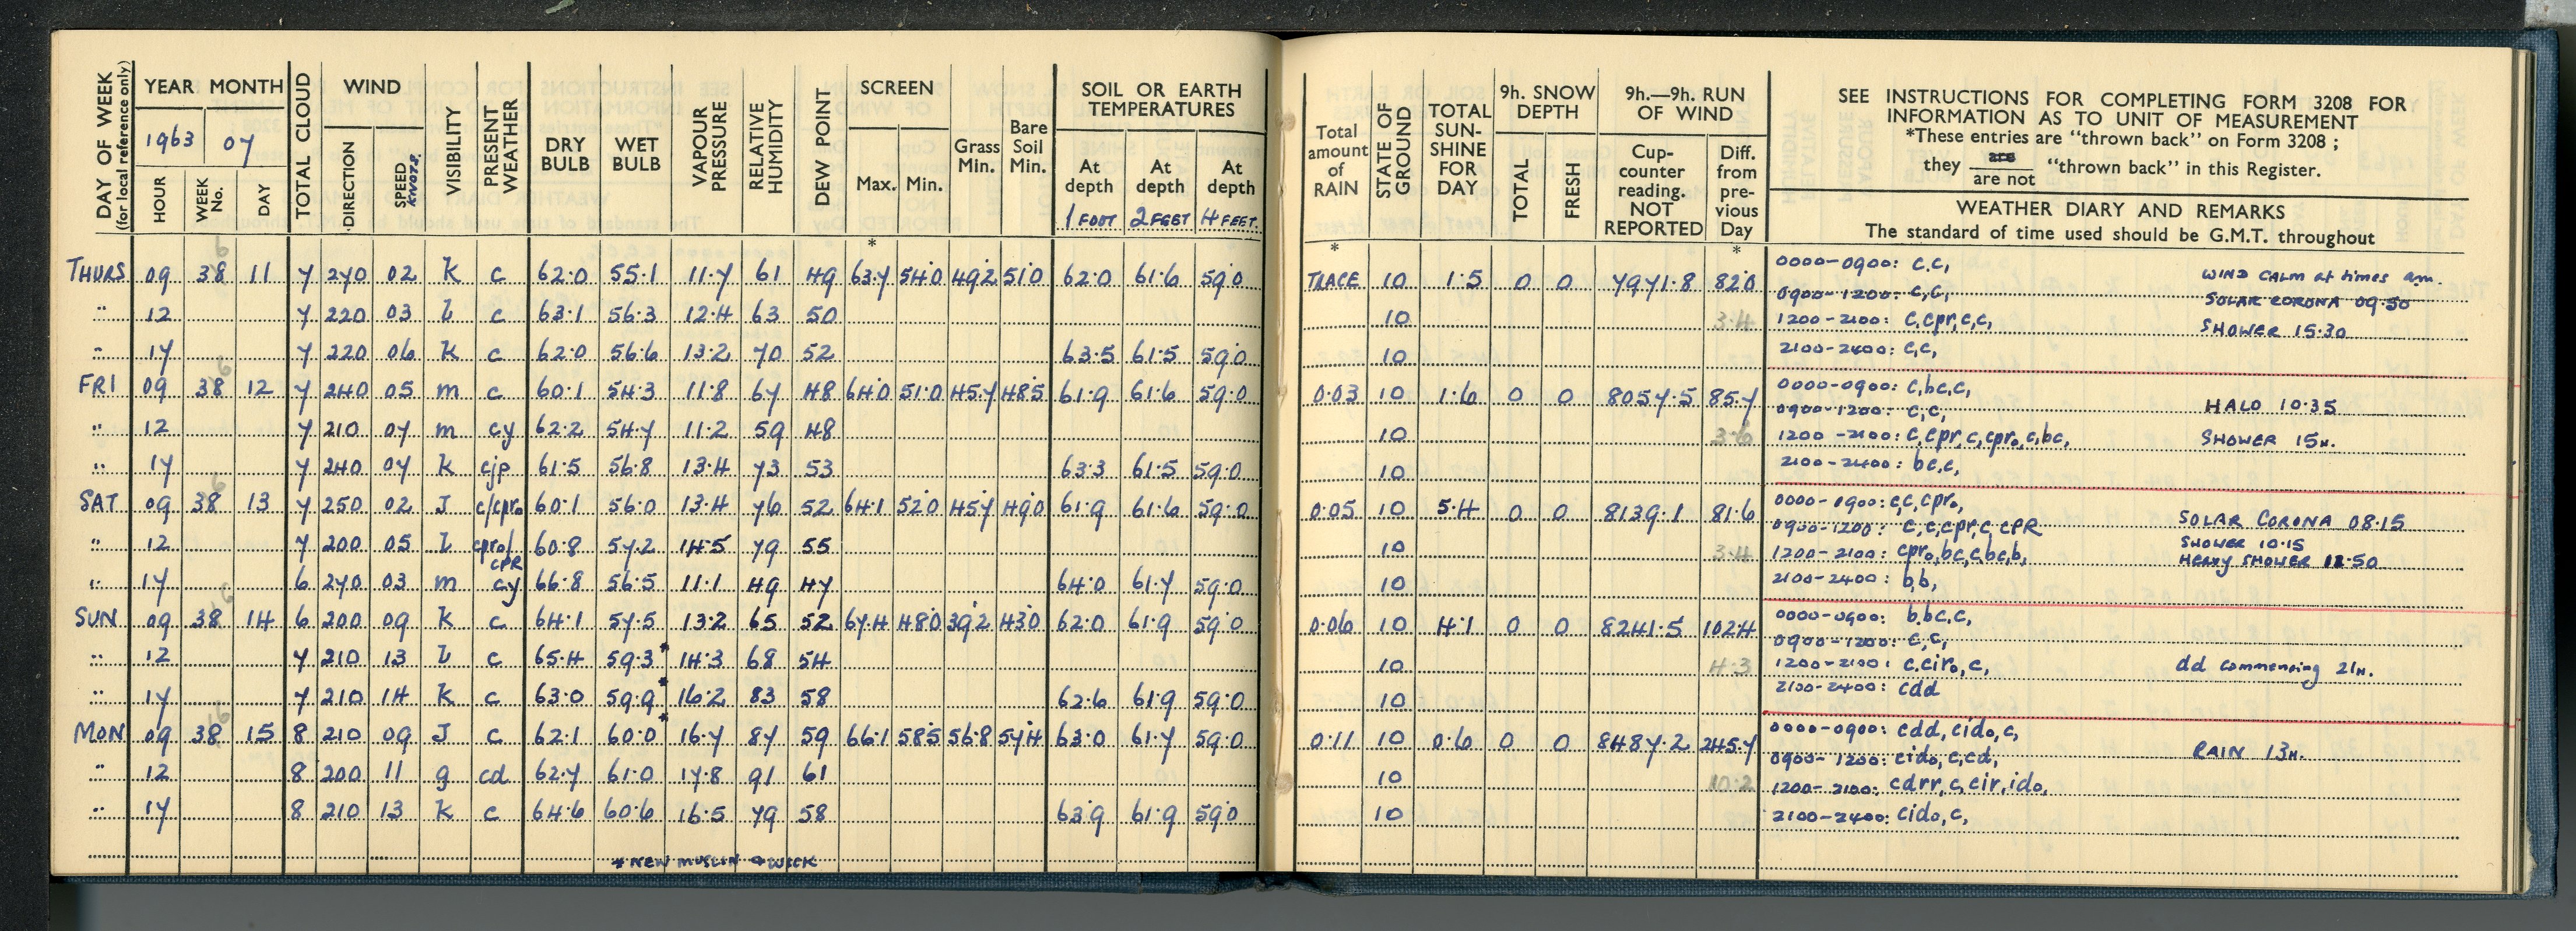 DAY OF WEEK
(for local reference only)
YEAR MONTH
1963 07
HOUR WEEK No. DAY
TOTAL CLOUD
WIND
DIRECTION SPEED KNOTS
VISIBILITY
PRESENT WEATHER
DRY BULB WET BULB
VAPOUR PRESSURE
RELATIVE HUMIDITY
DEW POINT
SCREEN
Max. Min.
Grass Min.
Bare Soil Min.
SOIL OR EARTH
TEMPERATURES
At depth At depth At depth
1 FOOT 2 FEET 4 FEET
*
THURS 09 38 11 7 270 02 K c 62.0 55.1 11.7 61 49 63.7 54.0 49.2 51.0 62.0 61.6 59.0
" 12 7 220 03 L c 63.1 56.3 12.4 63 50
" 17 7 220 06 K c 62.0 56.6 13.2 70 52 63.5 61.5 59.0
FRI 09 38 12 7 240 05 m c 60.1 54.3 11.8 67 48 64.0 51.0 45.7 48.5 61.9 61.6 59.0
" 12 7 210 07 m cy 62.2 54.7 11.2 59 48
" 17 7 240 07 K cjp 61.5 56.8 13.4 73 53 63.3 61.5 59.0
SAT 09 38 13 7 250 02 J c/cpr₀ 60.1 56.0 13.4 76 52 64.1 52.0 45.7 49.0 61.9 61.6 59.0
" 12 7 200 05 L cpr₀/cPR 60.8 57.2 14.5 79 55
" 17 6 270 03 m cy 66.8 56.5 11.1 49 47 64.0 61.7 59.0
SUN 09 38 14 6 200 09 K c 64.1 57.5 13.2 65 52 67.4 48.0 39.2 43.0 62.0 61.9 59.0
" 12 7 210 13 L c 65.4 59.3* 14.3 68 54
" 17 7 210 14 K c 63.0 59.9* 16.2 83 58 62.6 61.9 59.0
MON 09 38 15 8 210 09 J c 62.1 60.0* 16.7 87 59 66.1 58.5 56.8 57.4 63.0 61.7 59.0
" 12 8 200 11 g cd 62.7 61.0 17.8 91 61
" 17 8 210 13 K c 64.6 60.6 16.5 79 58 63.9 61.9 59.0
* NEW MUSLIN & WICK
Total amount of RAIN
STATE OF GROUND
TOTAL SUN-SHINE FOR DAY
9h. SNOW DEPTH
TOTAL FRESH
9h.—9h. RUN OF WIND
Cup-counter reading. NOT REPORTED
Diff. from pre-vious Day
SEE INSTRUCTIONS FOR COMPLETING FORM 3208 FOR
INFORMATION AS TO UNIT OF MEASUREMENT
*These entries are "thrown back" on Form 3208 ;
they are / are not "thrown back" in this Register.
WEATHER DIARY AND REMARKS
The standard of time used should be G.M.T. throughout
* *
TRACE 10 1.5 0 0 7971.8 82.0 0000-0900: c.c, WIND CALM at times am.
0900-1200: c,c, SOLAR CORONA 09.50
10 3.4 1200-2100: c,cpr,c,c, SHOWER 15.30
10 2100-2400: c,c,
0.03 10 1.6 0 0 8057.5 85.7 0000-0900: c,bc,c,
0900-1200: c,c, HALO 10.35
10 3.6 1200-2100: c,cpr,c,cpr₀,c,bc, SHOWER 15H.
10 2100-2400: bc,c,
0.05 10 5.4 0 0 8139.1 81.6 0000-0900: c,c,cpr₀,
0900-1200: c,c,cpr,c,cPR SOLAR CORONA 08.15
10 3.4 1200-2100: cpr₀,bc,c,bc,b, SHOWER 10.15
HEAVY SHOWER 11.50
10 2100-2400: b,b,
0.06 10 4.1 0 0 8241.5 102.4 0000-0900: b.bc.c,
0900-1200: c,c,
10 4.3 1200-2100: c.cir₀,c, dd commencing 21H.
10 2100-2400: cdd
0.11 10 0.6 0 0 8487.2 245.7 0000-0900: cdd, cid₀,c,
0900-1200: cid₀,c,cd, RAIN 13H.
10 10.2 1200-2100: cdrr,c,cir,id₀,
10 2100-2400: cid₀,c,